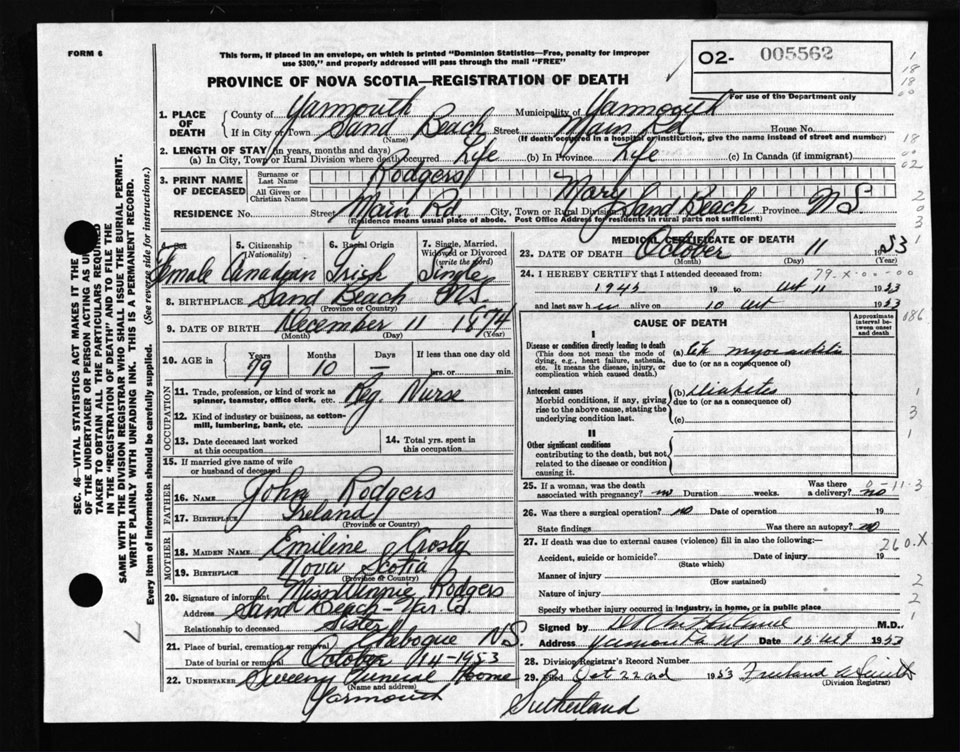 FORM 6
This form, if placed in an envelope, on which is printed "Dominion Statistics—Free, penalty for improper
use $300," and properly addressed will pass through the mail "FREE"
02- 005562
For use of the Department only
PROVINCE OF NOVA SCOTIA—REGISTRATION OF DEATH
SEC. 46—VITAL STATISTICS ACT MAKES IT THE
OF THE UNDERTAKER OR PERSON ACTING AS UN
TAKER TO OBTAIN ALL THE PARTICULARS REQUIRED
IN THE "REGISTRATION OF DEATH" AND TO FILE THE
SAME WITH THE DIVISION REGISTRAR WHO SHALL ISSUE THE BURIAL PERMIT.
WRITE PLAINLY WITH UNFADING INK. THIS IS A PERMANENT RECORD.
Every item of information should be carefully supplied. (See reverse side for instructions.)
1. PLACE OF DEATH County of Yarmouth Municipality of Yarmouth
If in City or Town Sand Beach Street Main Rd. House No.
(Name) (If death occurred in a hospital or institution, give the name instead of street and number)
2. LENGTH OF STAY (in years, months and days)
(a) In City, Town or Rural Division where death occurred Life (b) In Province Life (c) In Canada (if immigrant)
3. PRINT NAME OF DECEASED Surname or Last Name Rodgers
All Given or Christian Names Mary
RESIDENCE No. Street Main Rd. City, Town or Rural Division Sand Beach Province N.S.
(Residence means usual place of abode. Post Office Address for residents in rural parts not sufficient)
4. Sex Female
5. Citizenship (Nationality) Canadian
6. Racial Origin Irish
7. Single, Married, Widowed or Divorced (write the word) Single
8. BIRTHPLACE Sand Beach N.S.
(Province or Country)
9. DATE OF BIRTH December 11 1874
(Month) (Day) (Year)
10. AGE in Years Months Days If less than one day old
79 10 — hrs. or min.
OCCUPATION
11. Trade, profession or kind of work as spinner, teamster, office clerk, etc. Reg. Nurse
12. Kind of industry or business, as cotton-mill, lumbering, bank, etc.
13. Date deceased last worked at this occupation
14. Total yrs. spent in this occupation
15. If married give name of wife or husband of deceased
FATHER
16. Name John Rodgers
17. Birthplace Ireland
(Province or Country)
MOTHER
18. Maiden Name Emiline Crosby
19. Birthplace Nova Scotia
(Province or Country)
20. Signature of informant Miss Annie Rodgers
Address Sand Beach - Yar. Co.
Relationship to deceased Sister
21. Place of burial, cremation or removal Chebogue N.S.
Date of burial or removal October 14-1953
22. UNDERTAKER Sweeny Funeral Home
(Name and address)
Yarmouth
MEDICAL CERTIFICATE OF DEATH
23. DATE OF DEATH October 11 1953
(Month) (Day)
24. I HEREBY CERTIFY that I attended deceased from: 79-X-00-00
1943 19 to Oct 11 1953
and last saw her alive on 10 Oct 1953
CAUSE OF DEATH
Approximate interval between onset and death
I
Disease or condition directly leading to death
(This does not mean the mode of dying, e.g., heart failure, asthenia, etc. It means the disease, injury, or complication which caused death.)
(a) Ch myocarditis
due to (or as a consequence of)
Antecedent causes
Morbid conditions, if any, giving rise to the above cause, stating the underlying condition last.
(b) Diabetes
due to (or as a consequence of)
(c)
II
Other significant conditions
contributing to the death, but not related to the disease or condition causing it.
25. If a woman, was the death associated with pregnancy? no Duration weeks. Was there a delivery? no
26. Was there a surgical operation? no Date of operation 19
State findings Was there an autopsy? no
27. If death was due to external causes (violence) fill in also the following: 260.X
Accident, suicide or homicide? Date of injury 19
(State which)
Manner of injury
(How sustained)
Nature of injury
Specify whether injury occurred in industry, in home, or in public place
Signed by M.D.
Address Yarmouth NS Date 15 Oct 1953
28. Division Registrar's Record Number
29. Filed Oct 22nd 1953 Freeland Smith
(Division Registrar)
Sutherland